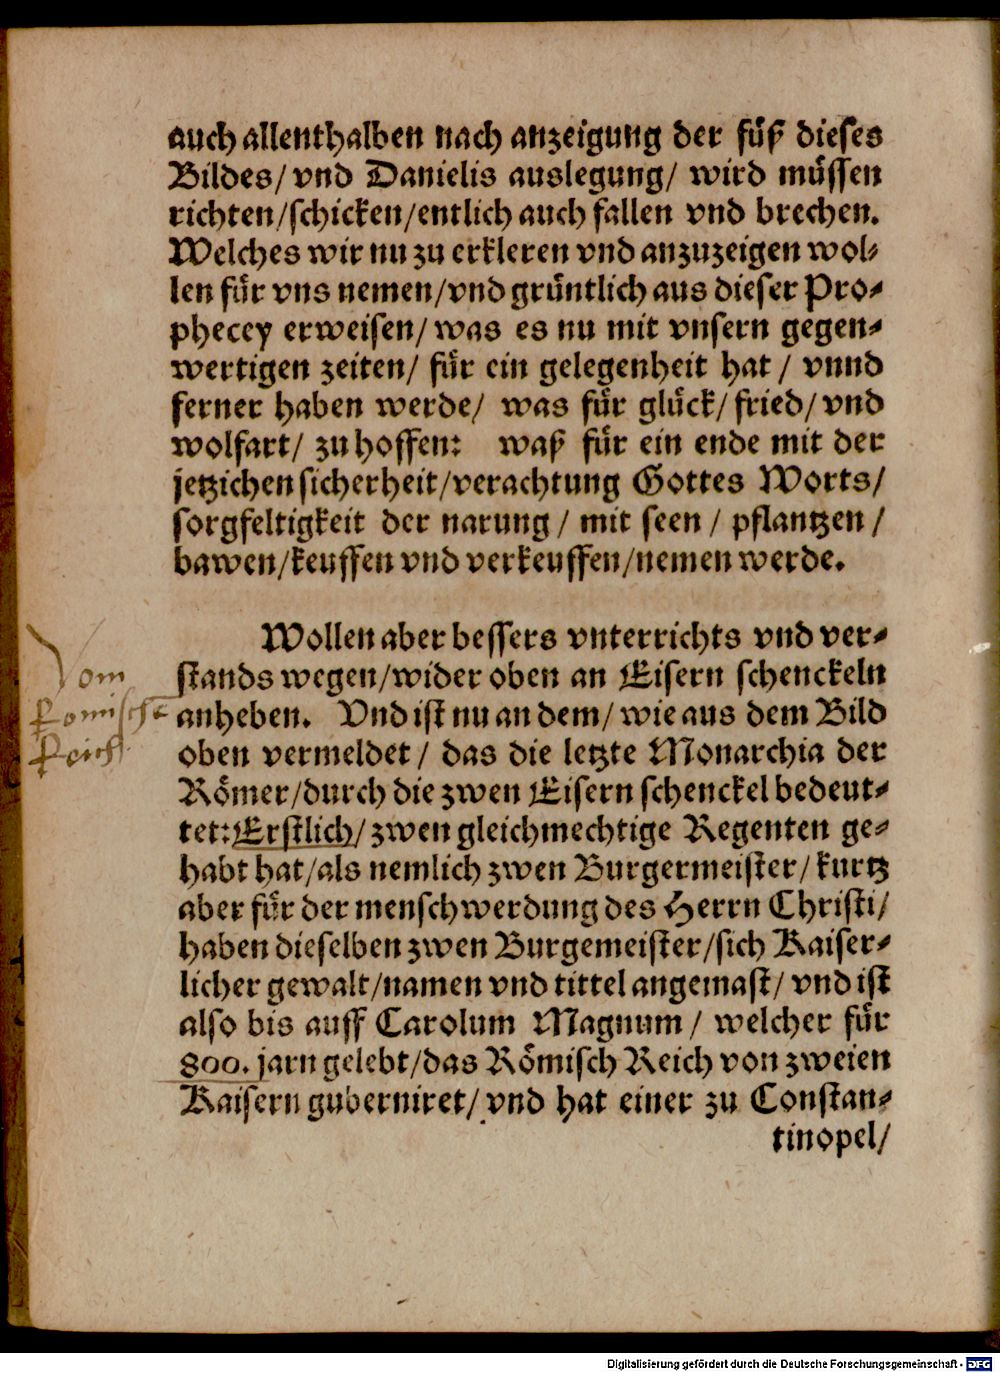 auch allenthalben nach anzeigung der füß dieses
Bildes/ vnd Danielis auslegung/ wird müssen
richten/schicken/entlich auch fallen vnd brechen.
Welches wir nu zu erkleren vnd anzuzeigen wol-
len für vns nemen/vnd gründtlich aus dieser Pro-
phecey erweisen/ was es nu mit vnsern gegen-
wertigen zeiten/ für ein gelegenheit hat/ vnnd
ferner haben werde/ was für glück/ fried/ vnd
wolfart/ zu hoffen: waß für ein ende mit der
jetzichen sicherheit/verachtung Gottes Worts/
sorgfeltigkeit der narung/ mit seen/ pflantzen/
bawen/keuffen vnd verkeuffen/nemen werde.
Wollen aber bessers vnterrichts vnd ver-
stands wegen/wider oben an Eisern schenckeln
anheben. Vnd ist nu an dem/ wie aus dem Bild
oben vermeldet/ das die letzte Monarchia der
Römer/durch die zwen Eisern schenckel bedeut-
tet: Erstlich/ zwen gleichmechtige Regenten ge-
habt hat/als nemlich zwen Burgermeister/ kurtz
aber für der menschwerdung des Herrn Christi/
haben dieselben zwen Burgemeister/sich Kaiser-
licher gewalt/namen vnd tittel angemast/ vnd ist
also bis auff Carolum Magnum/ welcher für
800. jarn gelebt/das Römisch Reich von zweien
Kaisern guberniret/ vnd hat einer zu Constan-
tinopel/
Vom
Romisch
Reich
Digitalisierung gefördert durch die Deutsche Forschungsgemeinschaft - DFG